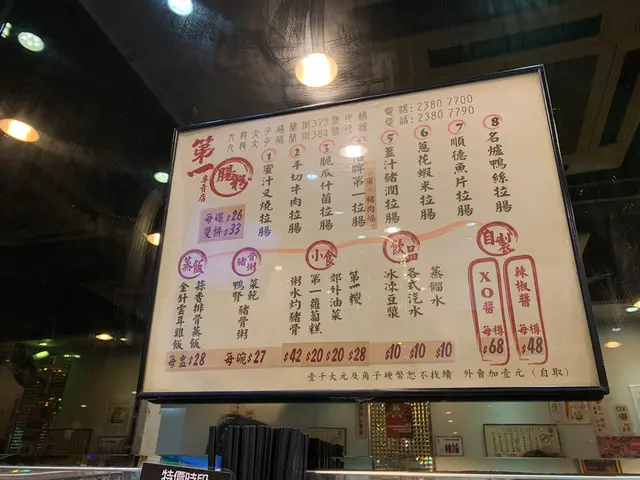 第一
腸粉
專賣店
每碟$26
雙拼$33
電話:2380 7700
電話:2380 7790
1 蜜汁叉燒拉腸
2 手切牛肉拉腸
3 脆瓜什菌拉腸
牌第一拉腸
5 薑汁豬潤拉腸
6 蔥花蝦米拉腸
7 順德魚片拉腸
8 名爐鴨絲拉腸
蒸飯
蒜香排骨蒸飯
金針雲耳雞飯
每盅$28
豬骨粥
菜乾
鴨腎
豬骨粥
每碗$27
小食
第一糭
郊外油菜
第一蘿蔔糕
粥水灼豬骨
$42 $20 $20 $28
飲品
蒸餾水
各式汽水
冰凍豆漿
$10 $10 $10
自製
XO醬
每樽
$68
辣椒醬
每樽
$48
壹千大元及角子硬幣恕不找續 外賣加壹元(自取)
特價時段